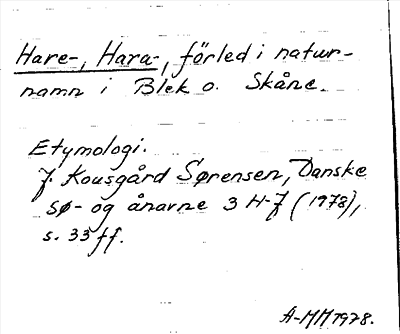 Hare-, Hara-, förled i natur-
namn i Blek o. Skåne.
Etymologi.
J. Kousgård Sørensen, Danske
sø- og ånavne 3 H-J (1978),
s. 33 ff.
A-MM 1978.